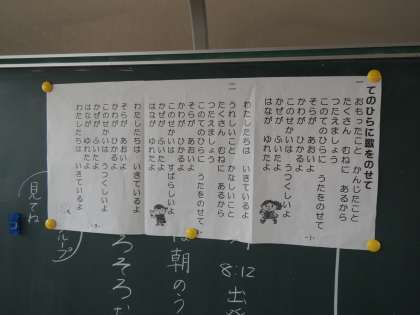 てのひらに歌をのせて
一
おもったこと かんじたこと
たくさん むねに あるから
つたえましょう
このてのひらに うたをのせて
そらが あおいよ
かわが ひかるよ
このせかいは うつくしいよ
かぜが ふいたよ
はなが ゆれたよ
わたしたちは いきているよ
二
うれしいこと かなしいこと
たくさん むねに あるから
つたえましょう
このてのひらに うたをのせて
そらが あおいよ
かわが ひかるよ
このせかいは すばらしいよ
かぜが ふいたよ
はなが ゆれたよ
わたしたちは いきているよ
そらが あおいよ
かわが ひかるよ
このせかいは うつくしいよ
かぜが ふいたよ
はなが ゆれたよ
わたしたちは いきているよ
8:12
は朝のう
ろそろな
ループ
見てね